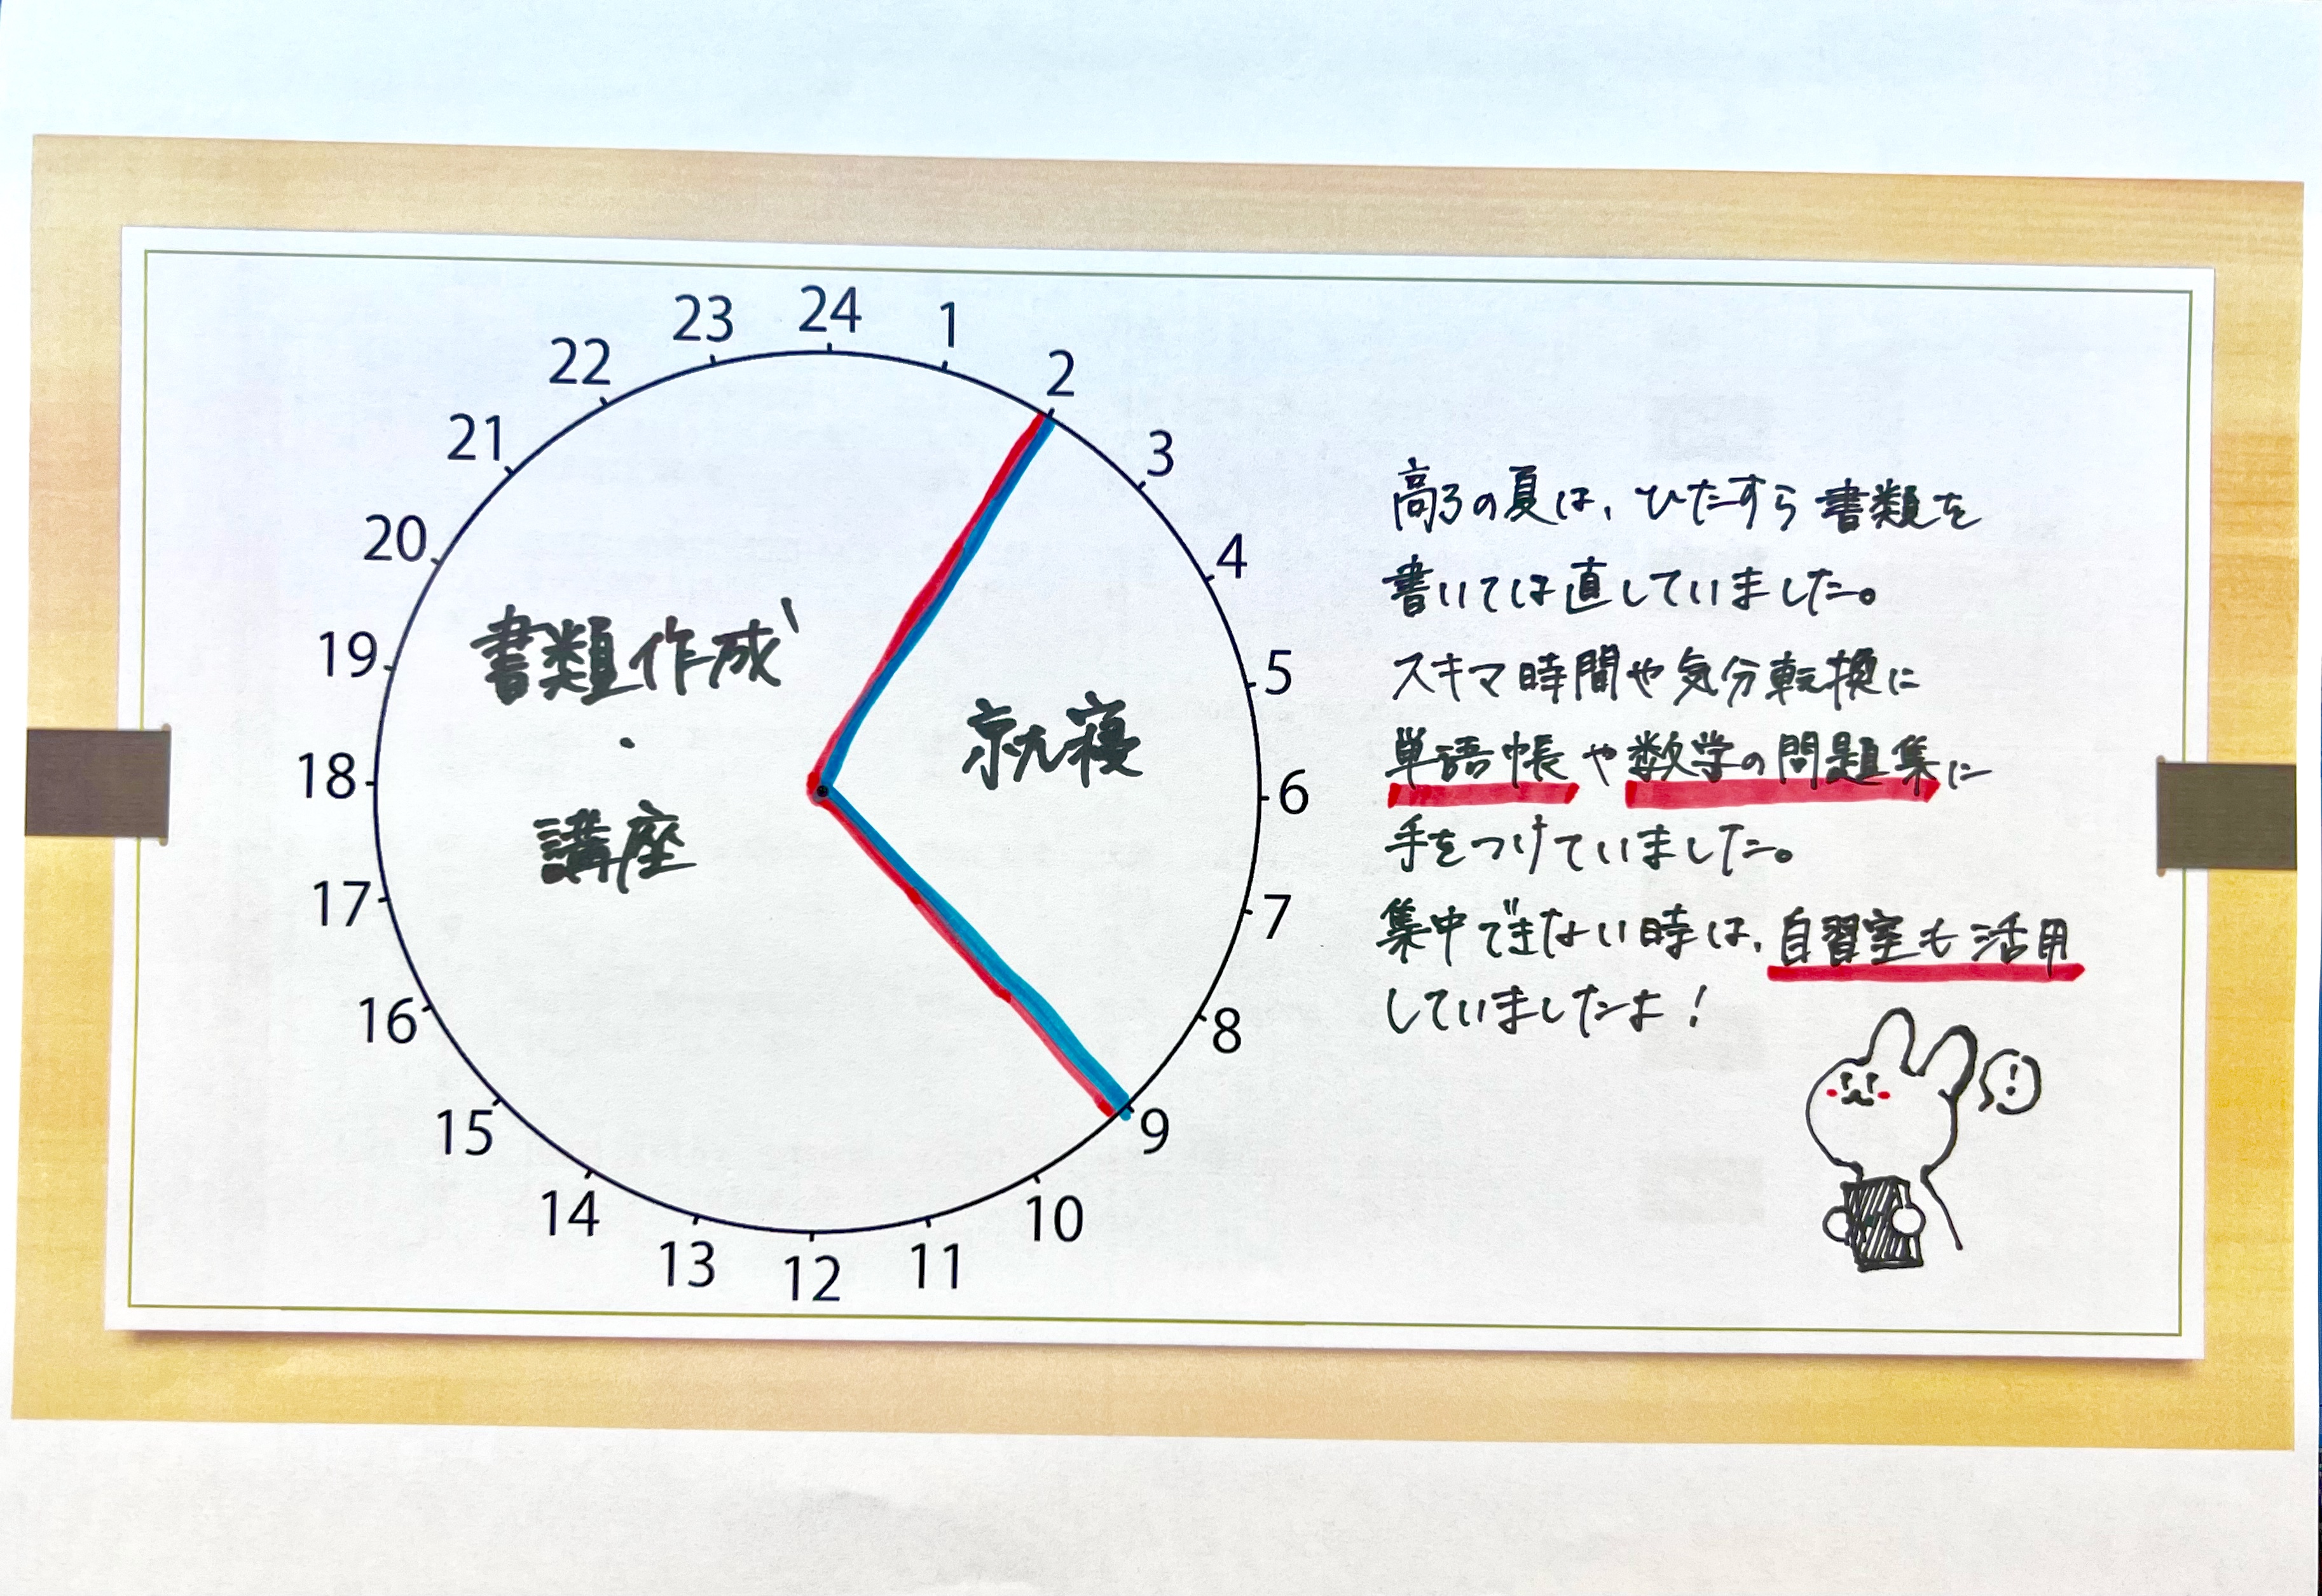 24
1
2
3
4
5
6
7
8
9
10
11
12
13
14
15
16
17
18
19
20
21
22
23
書類作成
・
講座
就寝
高3の夏は、ひたすら書類を
書いては直していました。
スキマ時間や気分転換に
単語帳や数学の問題集に
手をつけていました。
集中できない時は、自習室も活用
していましたよ！
!